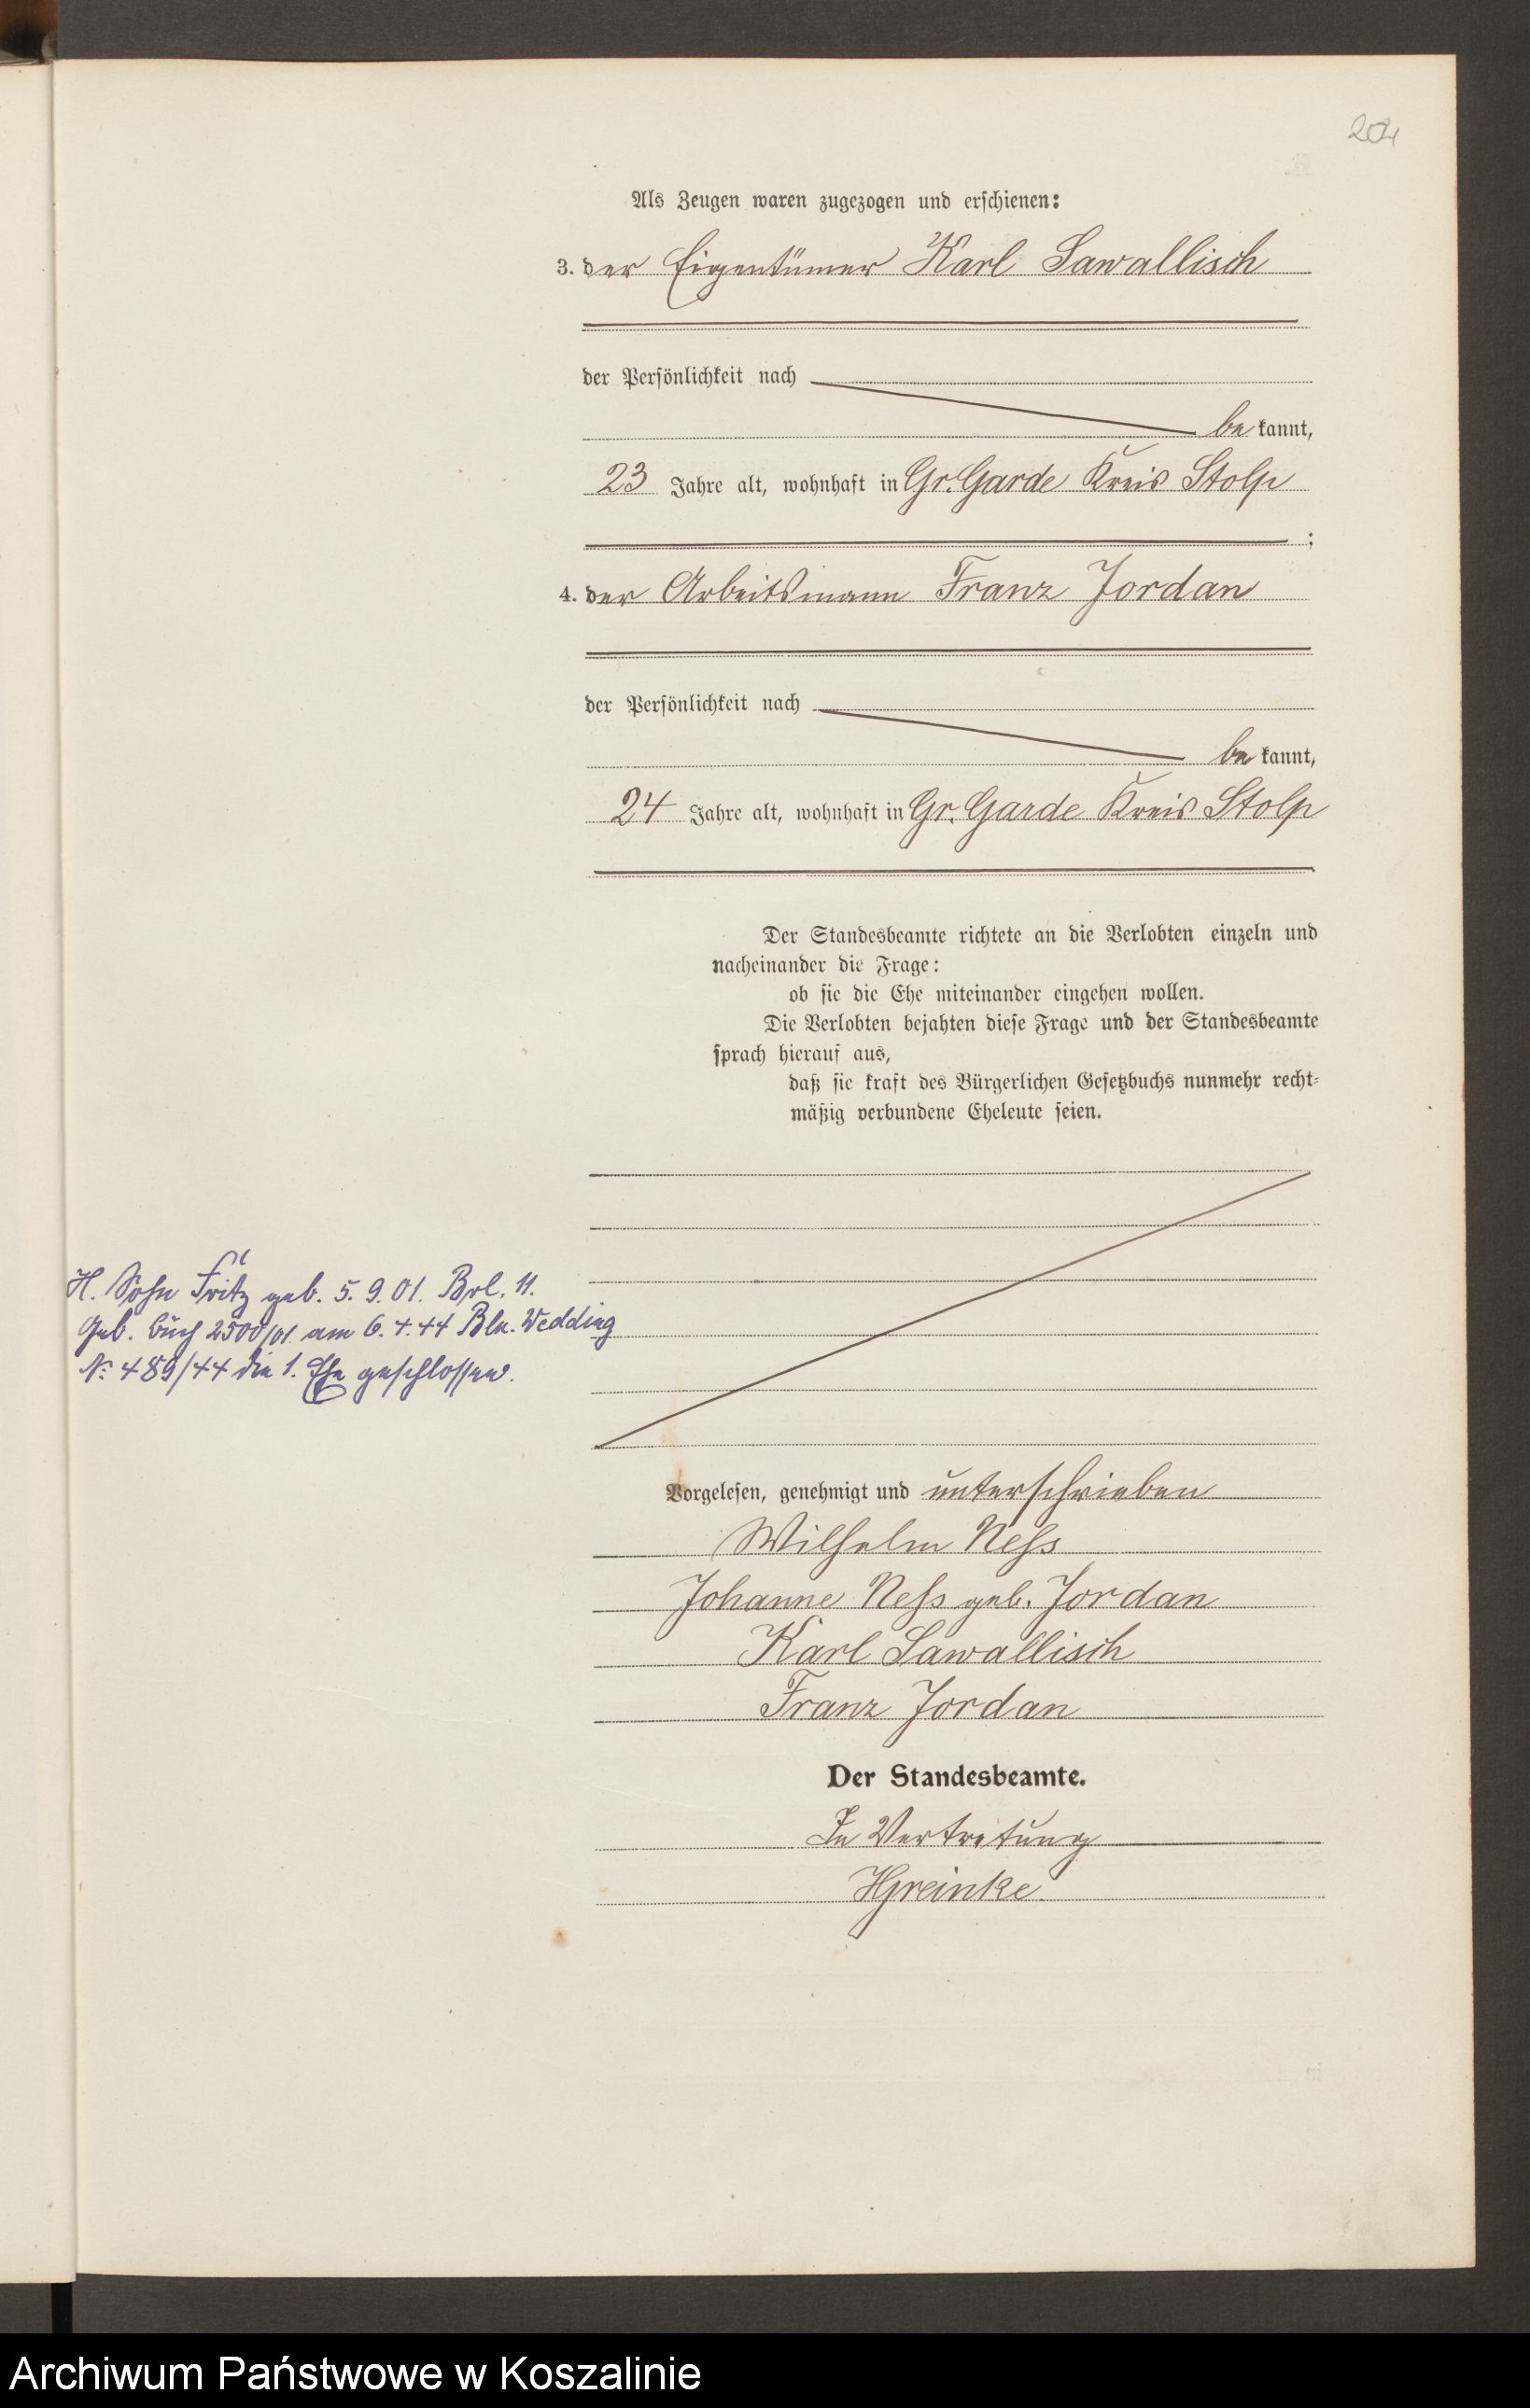 204
Als Zeugen waren zugezogen und erschienen:
3. der Eigentümer Karl Sawallisch
der Persönlichkeit nach
be kannt,
23 Jahre alt, wohnhaft in Gr. Garde Kreis Stolp
;
4. der Arbeitsmann Franz Jordan
der Persönlichkeit nach
be kannt,
24 Jahre alt, wohnhaft in Gr. Garde Kreis Stolp
Der Standesbeamte richtete an die Verlobten einzeln und
nacheinander die Frage:
ob sie die Ehe miteinander eingehen wollen.
Die Verlobten bejahten diese Frage und der Standesbeamte
sprach hierauf aus,
daß sie kraft des Bürgerlichen Gesetzbuchs nunmehr recht-
mäßig verbundene Eheleute seien.
Sohn Fritz geb. 5. 9. 01. Brl. 11.
Geb. buch 2500/01. am 6. 4. 44 Bln. Wedding
№ 489/44 die 1. Ehe geschlossen.
Vorgelesen, genehmigt und unterschrieben
Wilhelm Neß
Johanne Neß geb. Jordan
Karl Sawallisch
Franz Jordan
Der Standesbeamte.
In Vertretung
HGreinke.
Archiwum Państwowe w Koszalinie